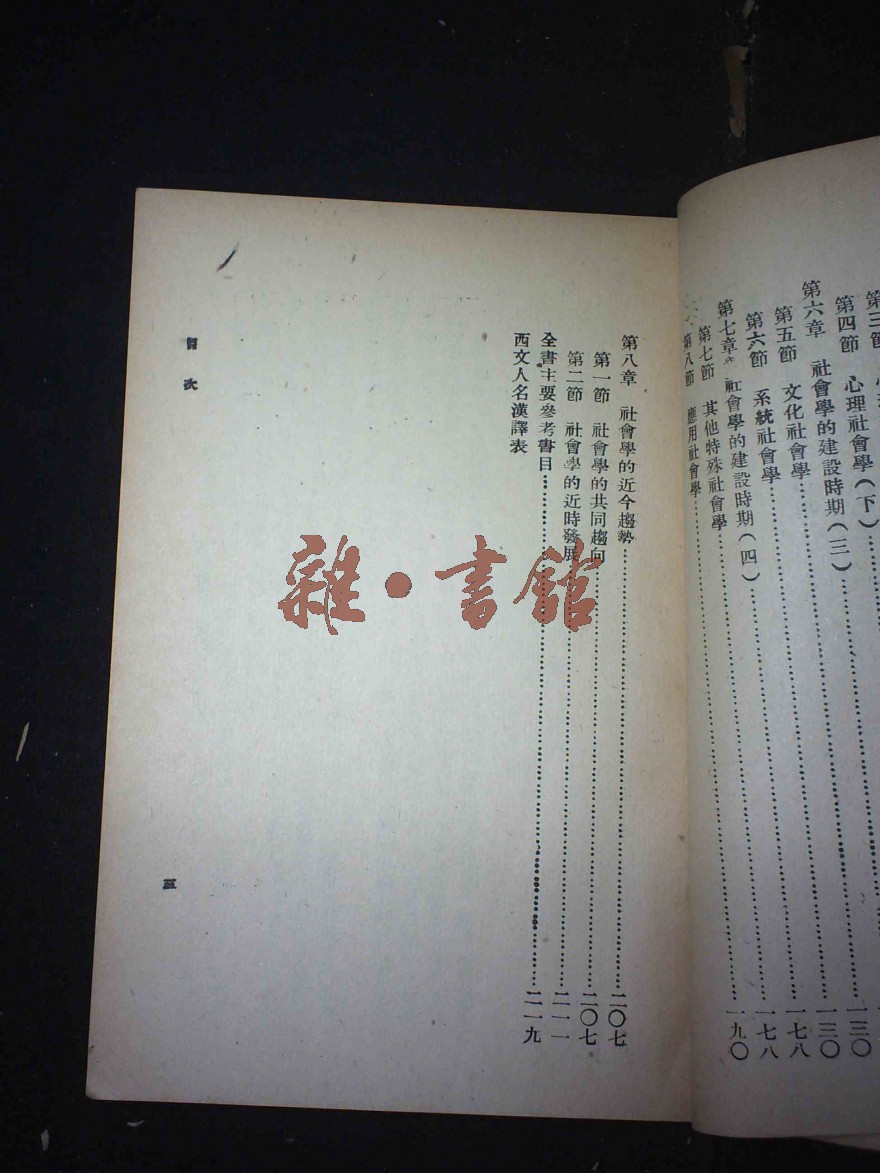 第三節 心理
第四節 心理社會學(下)
第六章 社會學的建設時期(三)……一三〇
第五節 文化社會學……一三〇
第六節 系統社會學……一七八
第七章 社會學的建設時期(四)……一七八
第七節 其他特殊社會學……一九〇
第八節 應用社會學
第八章 社會學的近今趨勢……二〇七
第一節 社會學的共同趨向……二〇七
第二節 社會學的近時發展……二一一
全書主要參考書目……二一九
西文人名漢譯表
目次
三
雜·書館